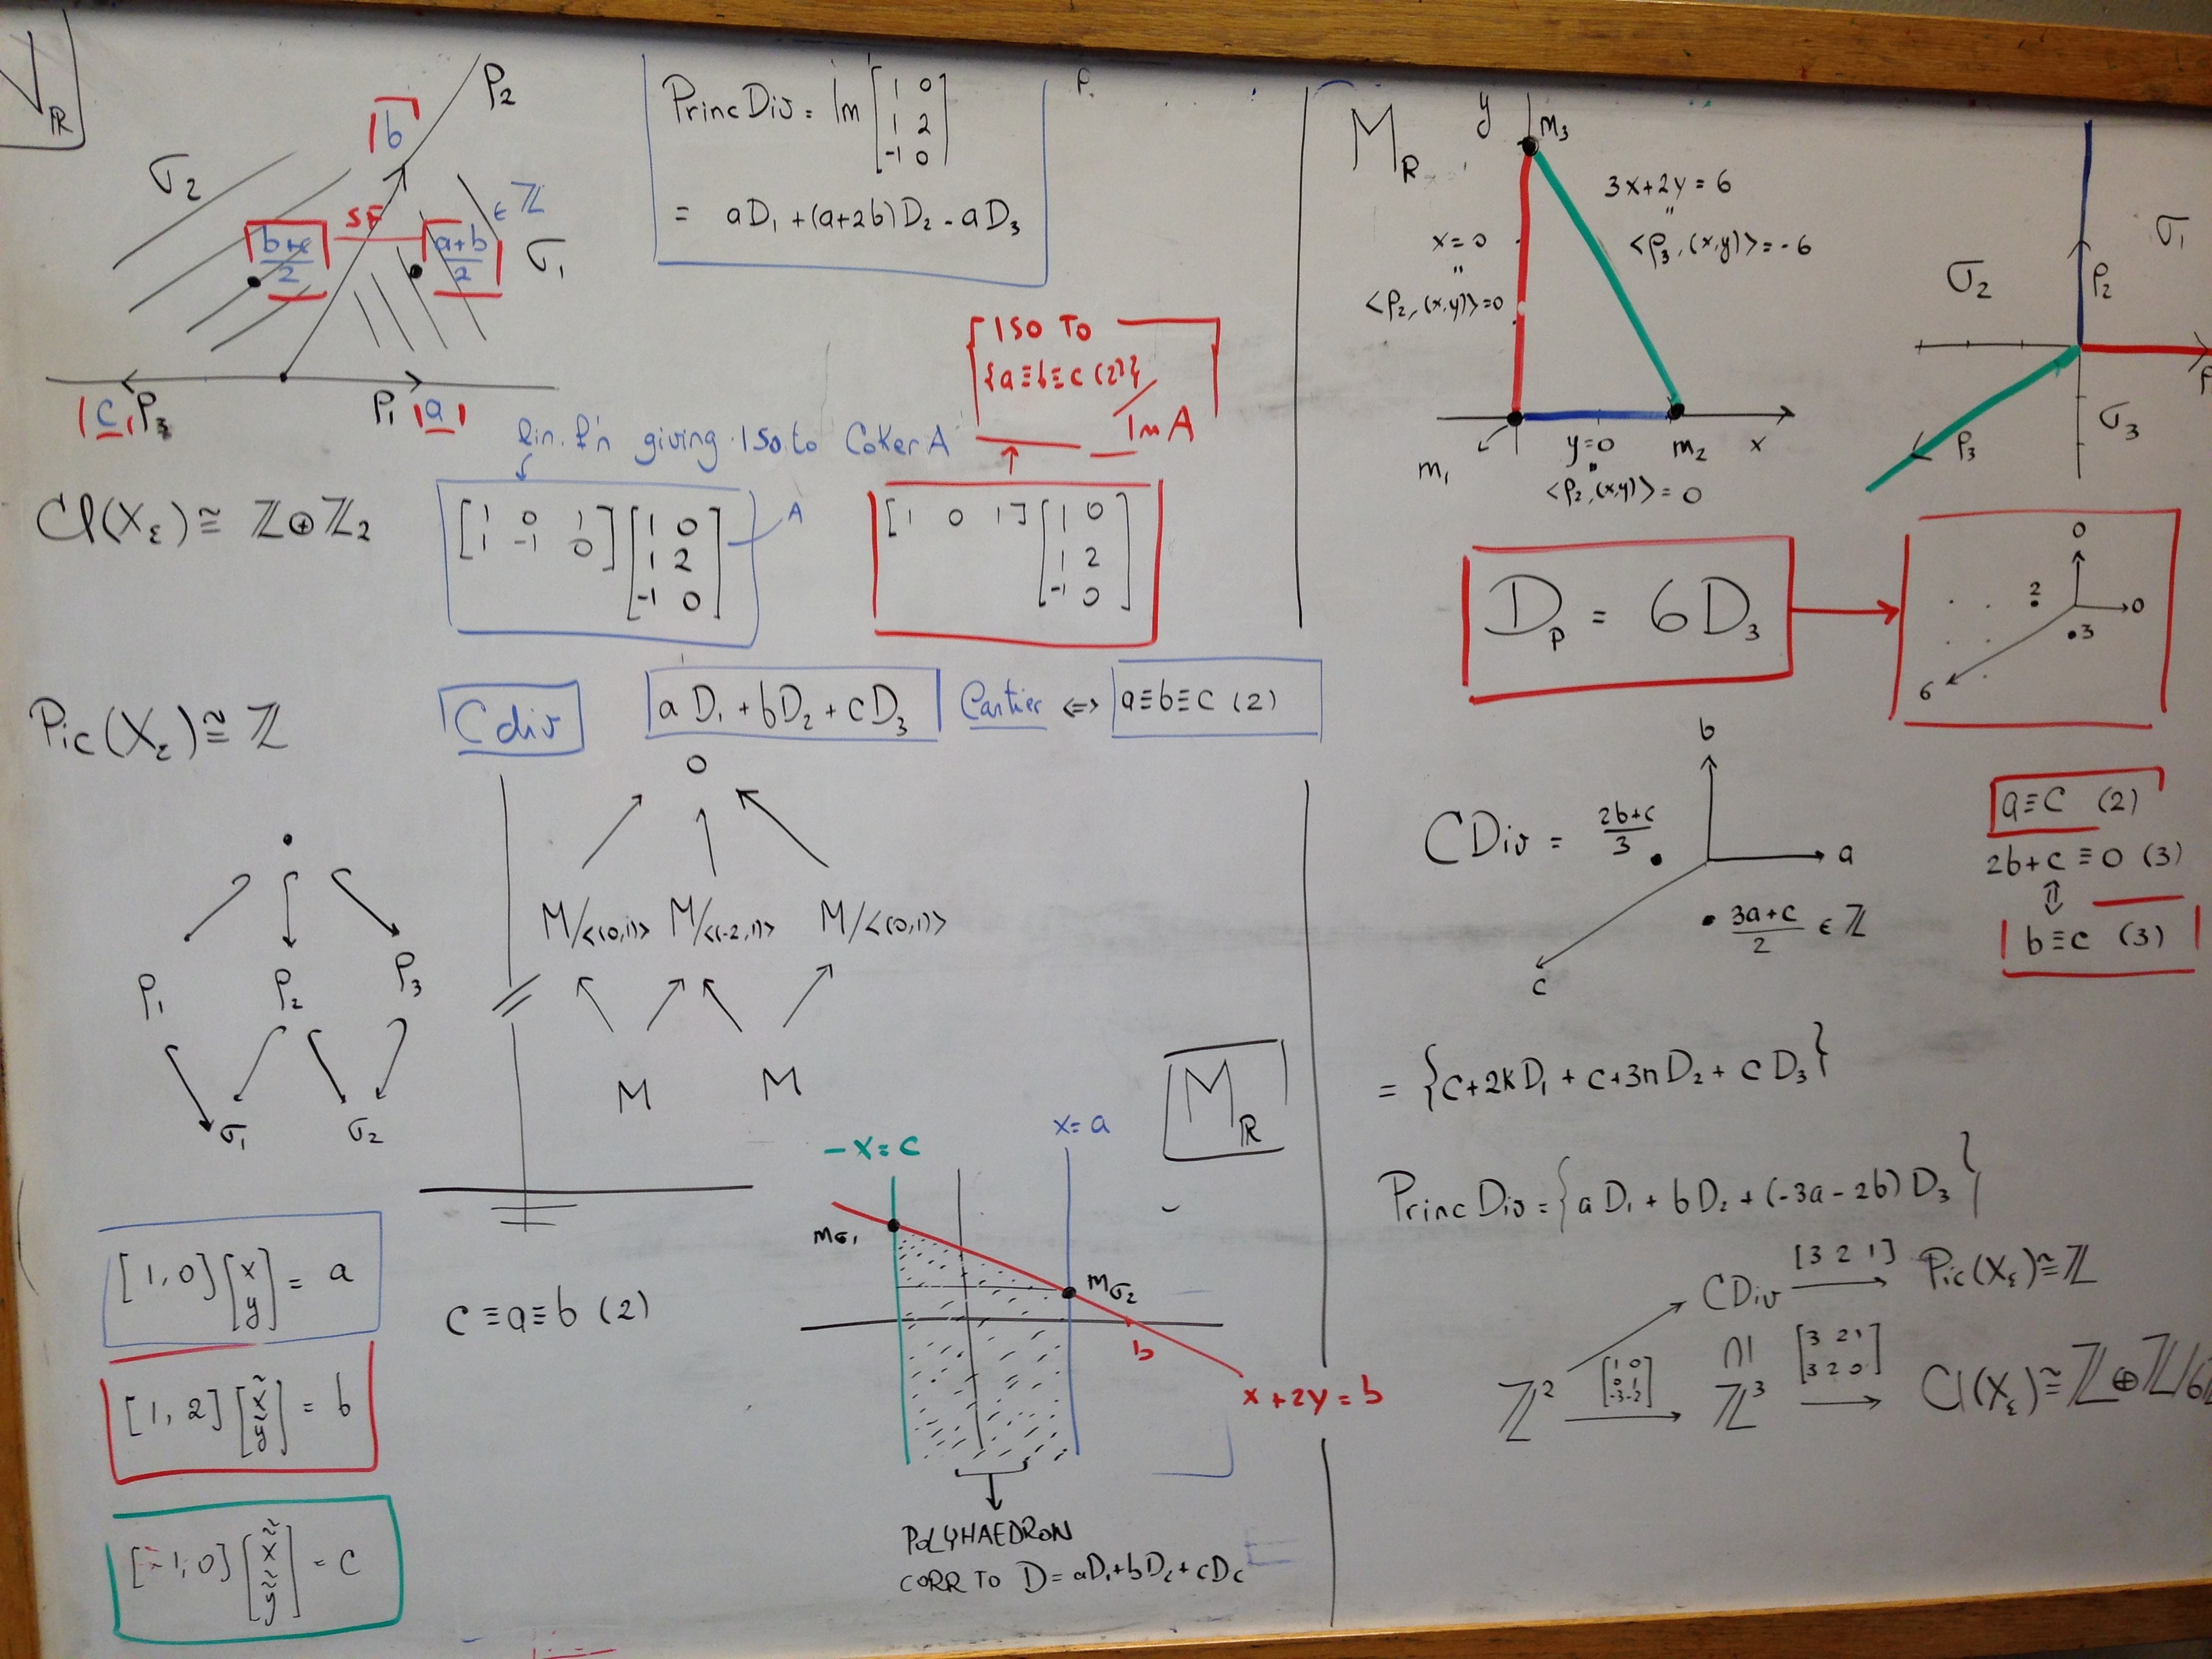 N_ℝ
ρ₂
b
σ₂
SF
∈ ℤ
b+c/2
a+b/2
σ₁
c ρ₃
ρ₁ a
PrincDiv = Im [1 0; 1 2; -1 0]
= aD₁ + (a+2b)D₂ - aD₃
ISO TO
{a≡b≡c (2)}/
Im A
lin. f'n giving Iso to Coker A
Cl(X_Σ) ≅ ℤ⊕ℤ₂
[1 0 1; 1 -1 0] [1 0; 1 2; -1 0]
A
[1 0 1] [1 0; 1 2; -1 0]
Pic(X_Σ) ≅ ℤ
Cdiv
aD₁ + bD₂ + cD₃
Cartier ⟺ a≡b≡c (2)
0
M/<(0,1)> M/<(-2,1)> M/<(0,1)>
M M
ρ₁ ρ₂ ρ₃
σ₁ σ₂
[1,0][x; y] = a
[1,2][x̃; ỹ] = b
[-1,0][x̃̃; ỹ̃] = c
c≡a≡b (2)
M_ℝ
-x=c
x=a
mσ₁
mσ₂
b
x+2y=b
POLYHAEDRON
CORR TO D=aD₁+bD₂+cDc
M_ℝ
y
m₃
3x+2y=6
"
<ρ₃,(x,y)>=-6
x=0
"
<ρ₂,(x,y)>=0
m₁
y=0
"
<ρ₂,(x,y)>=0
m₂
x
σ₁
σ₂
ρ₂
σ₃
ρ₃
D_P = 6D₃
0
2
0
3
6
CDiv =
2b+c/3
b
a
3a+c/2 ∈ ℤ
c
a≡c (2)
2b+c≡0 (3)
⇕
b≡c (3)
= {c+2kD₁ + c+3nD₂ + cD₃}
PrincDiv = {aD₁ + bD₂ + (-3a-2b)D₃}
CDiv [3 2 1] → Pic(X_Σ)≅ℤ
∩|
ℤ² [1 0; 0 1; -3 -2] → ℤ³ [3 2 1; 3 2 0] → Cl(X_Σ)≅ℤ⊕ℤ/6ℤ